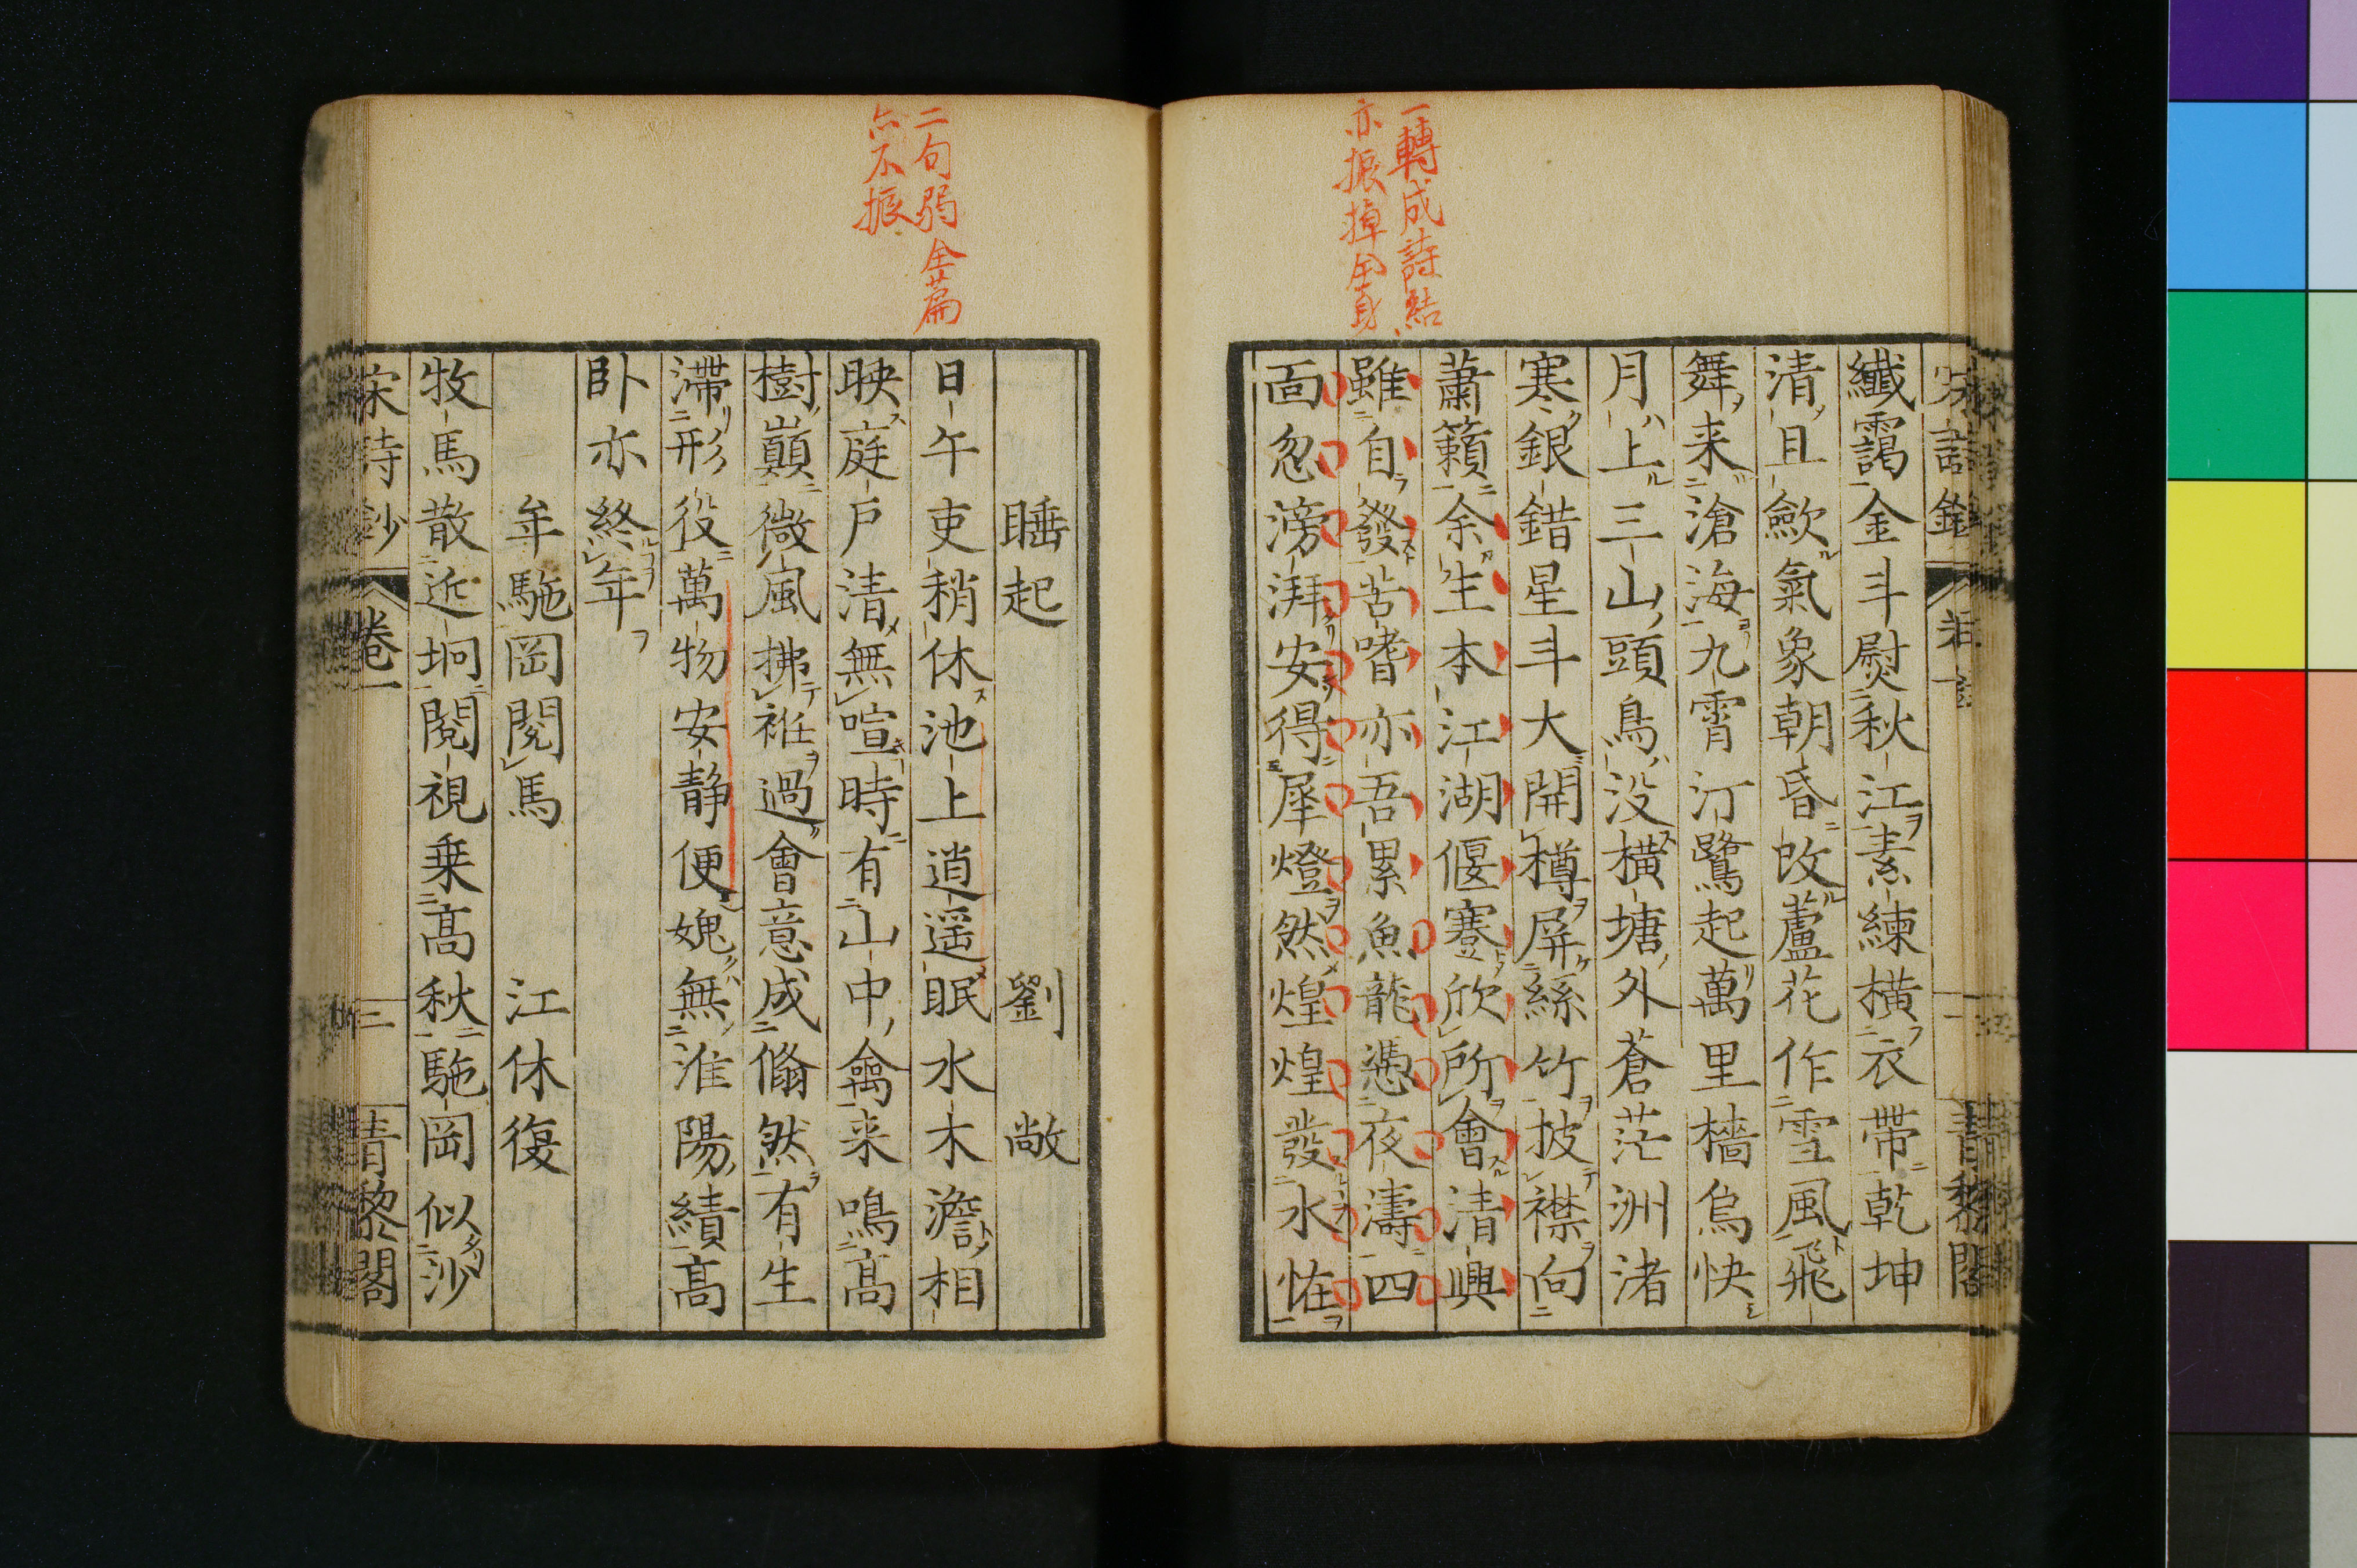 一轉成詩結
亦振掉全身
纖靄金斗熨秋江素練橫衣帶乾坤
清且歛氣象朝昏改蘆花作雪風飛
舞来滄海九霄汀鷺起萬里檣烏快
月上三山頭鳥没橫塘外蒼茫洲渚
寒銀錯星斗大開樽屏絲竹披襟向
蕭籟余生本江湖偃蹇欣所會清興
雖自發苦嗜亦吾累魚龍憑夜濤四
面忽滂湃安得犀燈然煌煌發水怪
二句弱全篇
亦不振
睡起 劉敞
日午吏稍休池上逍遥眠水木澹相
映庭戸清無喧時有山中禽来鳴高
樹巔微風拂袵過會意成翛然有生
滯形役萬物安静便媿無淮陽績高
卧亦終年
牟駞岡閱馬 江休復
牧馬散近坰閱視乗高秋駞岡似沙
宋詩鈔 卷一 三 青黎閣